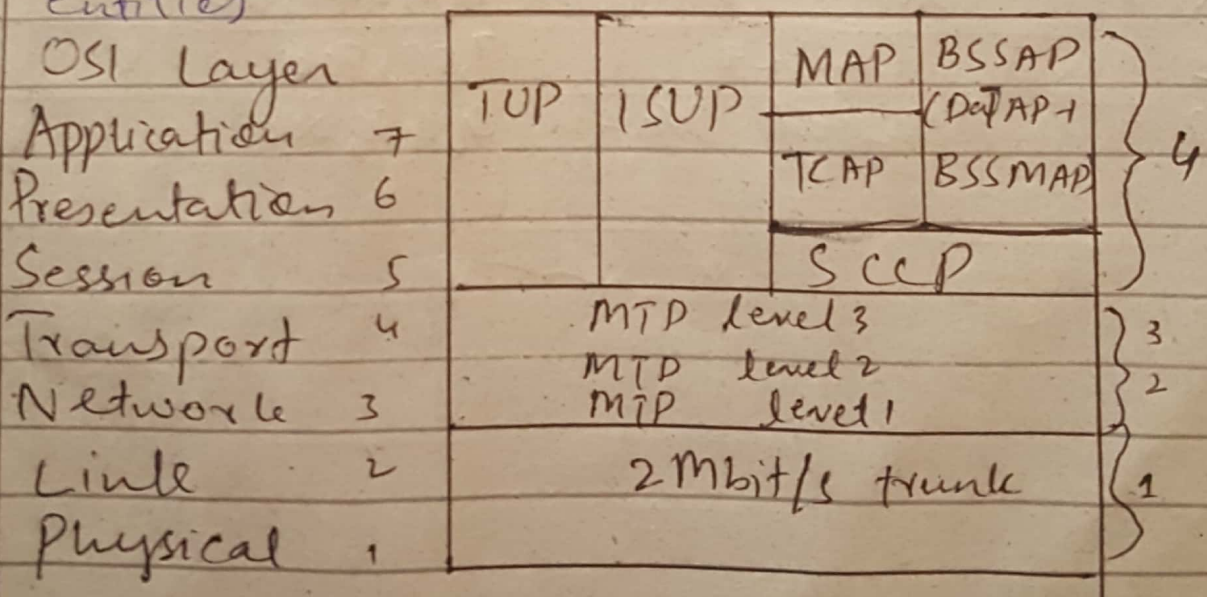 OSI Layer
Application 7
Presentation 6
Session 5
Transport 4
Network 3
Link 2
Physical 1
TUP
ISUP
MAP
TCAP
BSSAP
BSSMAP
SCCP
MTP level 3
MTP level 2
MTP level 1
2 Mbit/s trunk
4
3
2
1